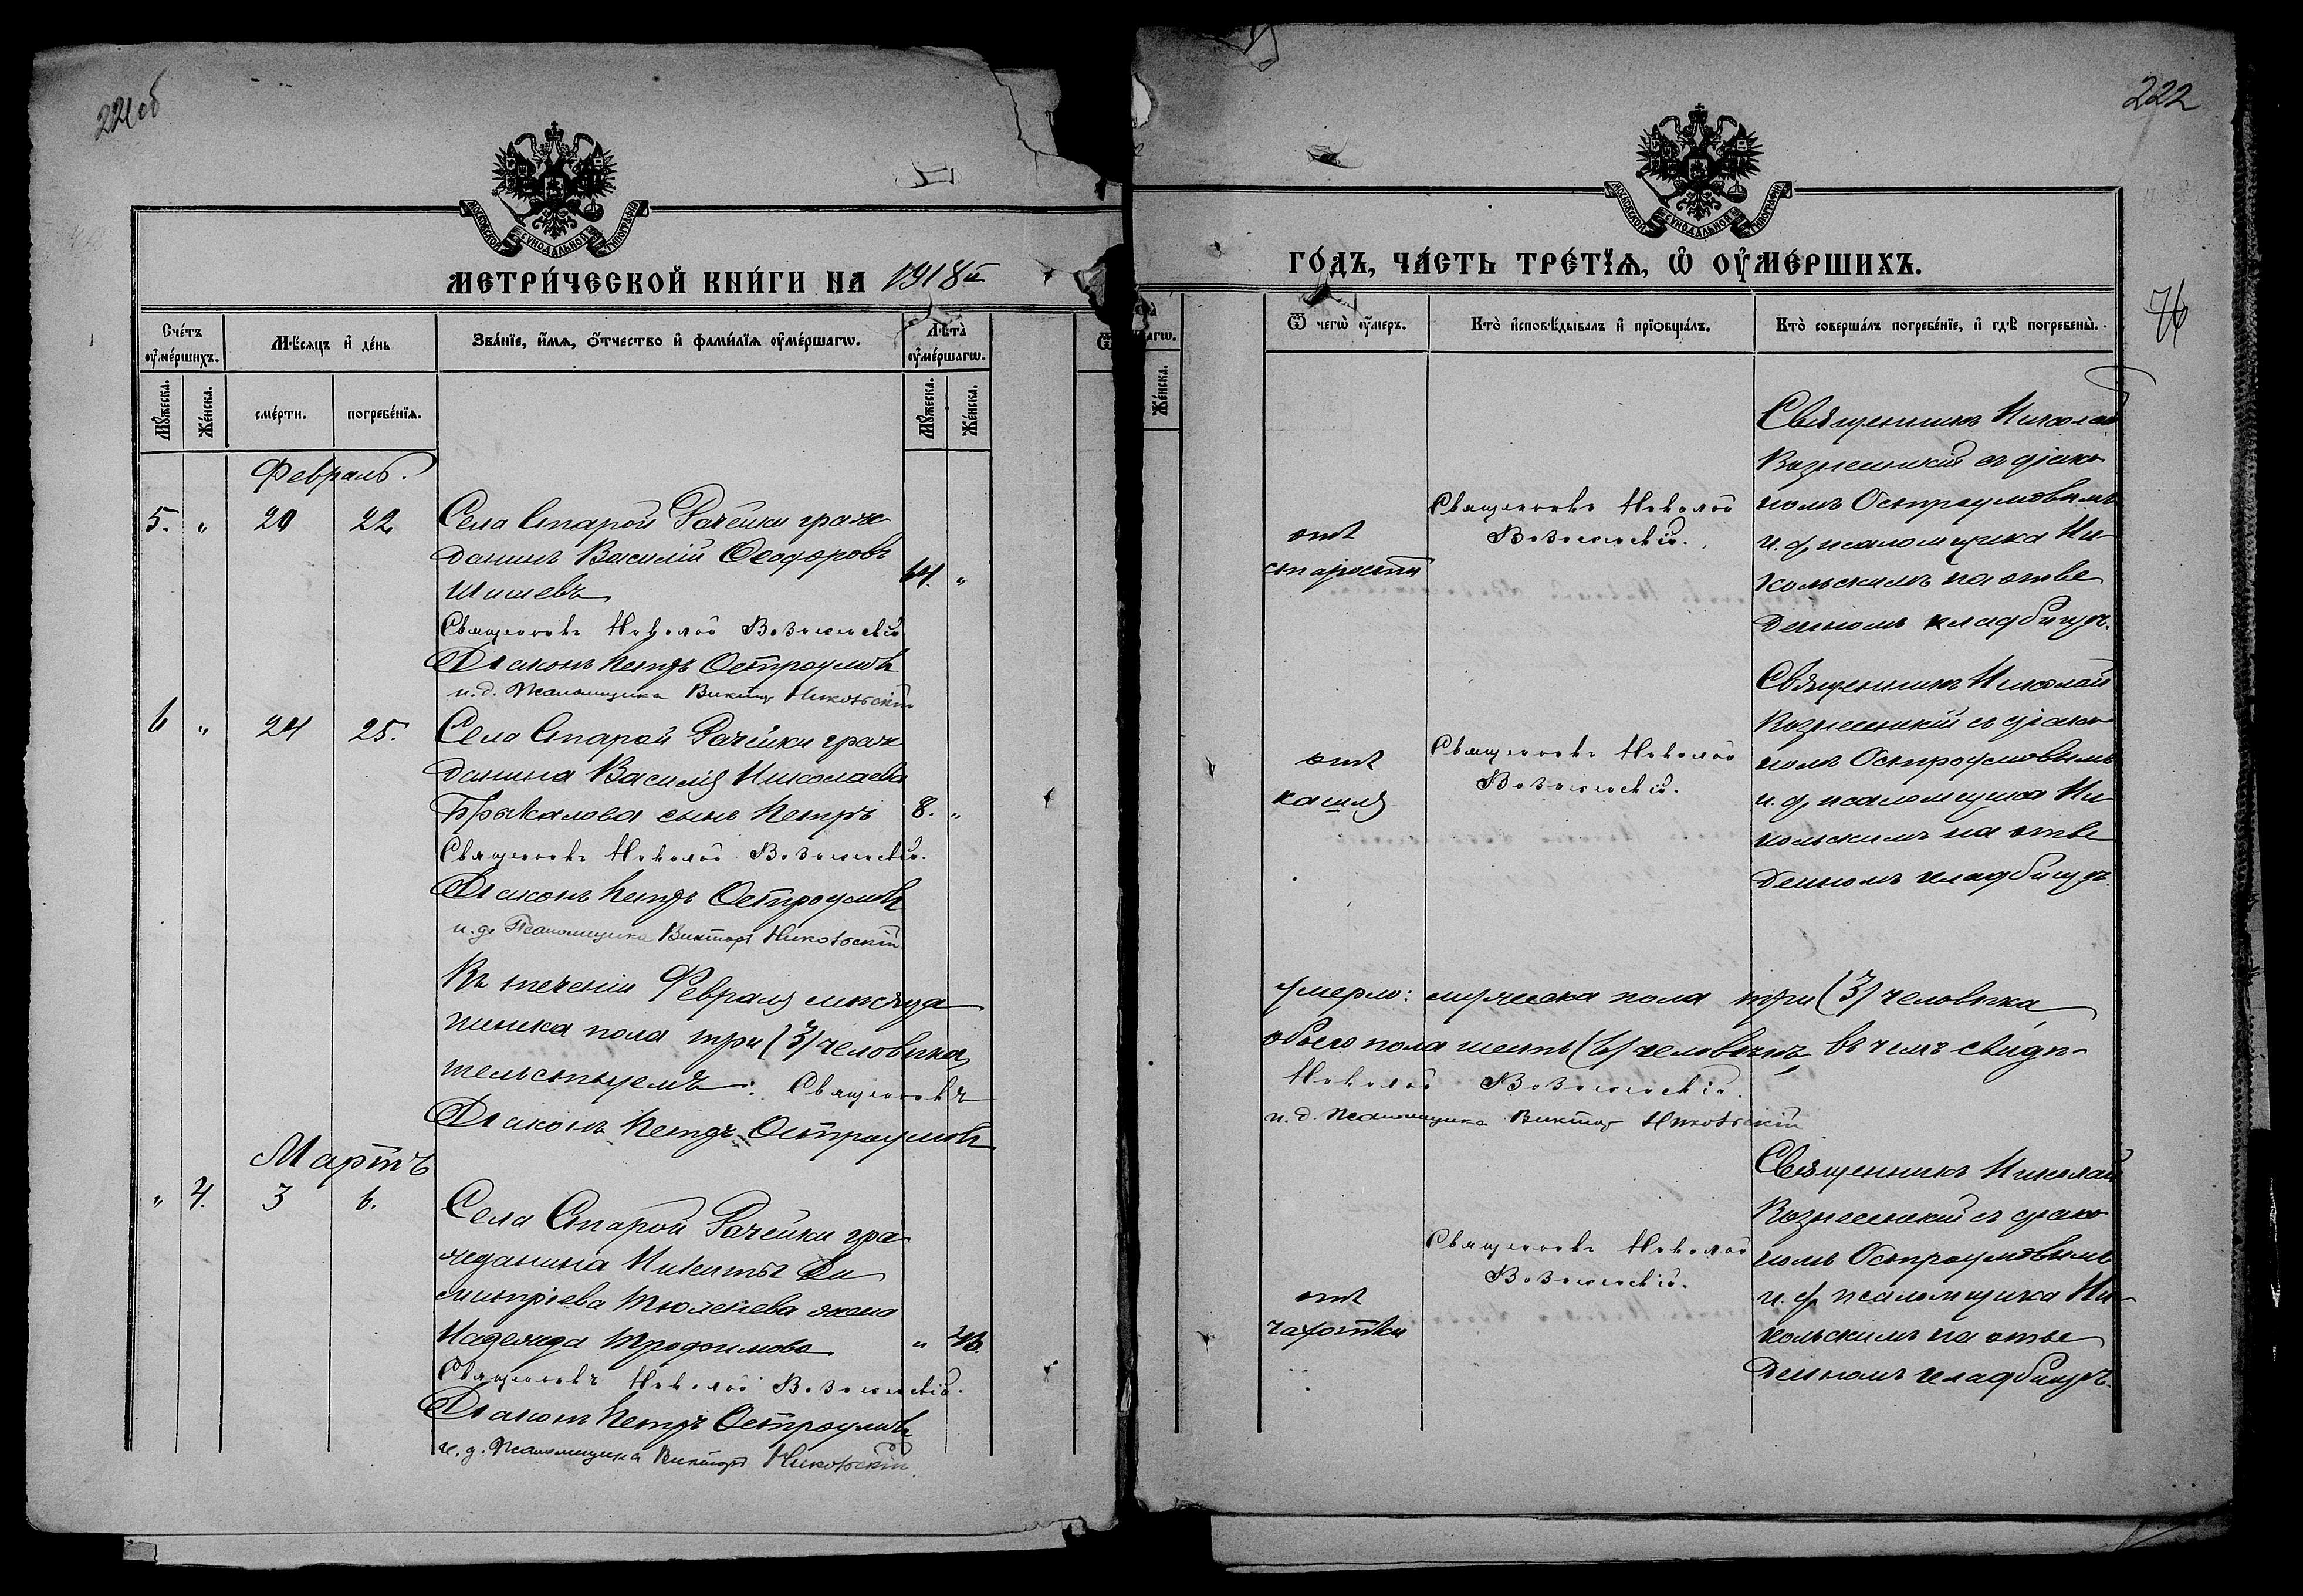 221об
МОСКОВСКОЙ СѴНОДАЛЬНОЙ ТИПОГРАФІИ
МЕТРИ́ЧЕСКОЙ КНИ́ГИ НА 1918й
Сче́тъ ᲂу҆ме́ршихъ.
Мѣ́сяцъ и҆ де́нь
Зва́нїе, и҆́мѧ, ѻ҆́тчество и҆ фами́лїѧ ᲂу҆ме́ршагѡ.
Лѣ́та ᲂу҆ме́ршагѡ.
Мꙋ́жеска.
Же́нска.
сме́рти.
погребе́нїѧ.
Мꙋ́жеска.
Же́нска.
Февраль.
5. " 20 22 Села Старой Рачейки граж
данинъ Василій Ѳеодоровъ
Шишевъ 64. "
Священникъ Николай Вознесенскій
Діаконъ Петръ Остроумовъ
и.д. Псаломщика Викторъ Никольскій
6 " 24 25. Села Старой Рачейки граж
данина Василія Николаева
Брыкалова сынъ Петръ 8. "
Священникъ Николай Вознесенскій.
Діаконъ Петръ Остроумовъ
и.д. Псаломщика Викторъ Никольскій
Въ теченіи Февраля мѣсяца
женска пола три (3) человѣка,
тельствуемъ: Священникъ
Діаконъ Петръ Остроумовъ
Мартъ
" 4. 3 6. Села Старой Рачейки гра
жданина Никиты Ди
митріева Тюленева жена
Надежда Трофимова " 46.
Священникъ Николай Вознесенскій.
Діаконъ Петръ Остроумовъ
и.д. Псаломщика Викторъ Никольскій.
222
76
МОСКОВСКОЙ СѴНОДАЛЬНОЙ ТИПОГРАФІИ
ГО́ДЪ, ЧА́СТЬ ТРЕ́ТЇѦ, Ѡ҆ ОУ҆МЕ́РШИХЪ.
Же́нска.
Ѿ чегѡ̀ ᲂу҆́меръ.
Кто̀ и҆сповѣ́дывалъ и҆ прїѻбща́лъ.
Кто̀ соверша́лъ погребе́нїе, и҆ гдѣ̀ погребены̀.
отъ
старости
Священникъ Николай
Вознесенскій.
Священникъ Николай
Вознесенскій съ діако
номъ Остроумовымъ
и.д. псаломщика Ни-
кольскимъ на отве
денномъ кладбищѣ.
отъ
кашля
Священникъ Николай
Вознесенскій.
Священникъ Николай
Вознесенскій съ діако
номъ Остроумовымъ
и.д. псаломщика Ни
кольскимъ на отве
денномъ кладбищѣ.
умерло: мужеска пола три (3) человѣка,
обоего пола шесть (6) человѣкъ, въ чемъ свидѣ-
Николай Вознесенскій.
и.д. Псаломщика Викторъ Никольскій
отъ
чахотки
Священникъ Николай
Вознесенскій.
Священникъ Николай
Вознесенскій съ діако
номъ Остроумовымъ
и.д. псаломщика Ни-
кольскимъ на отве
денномъ кладбищѣ.